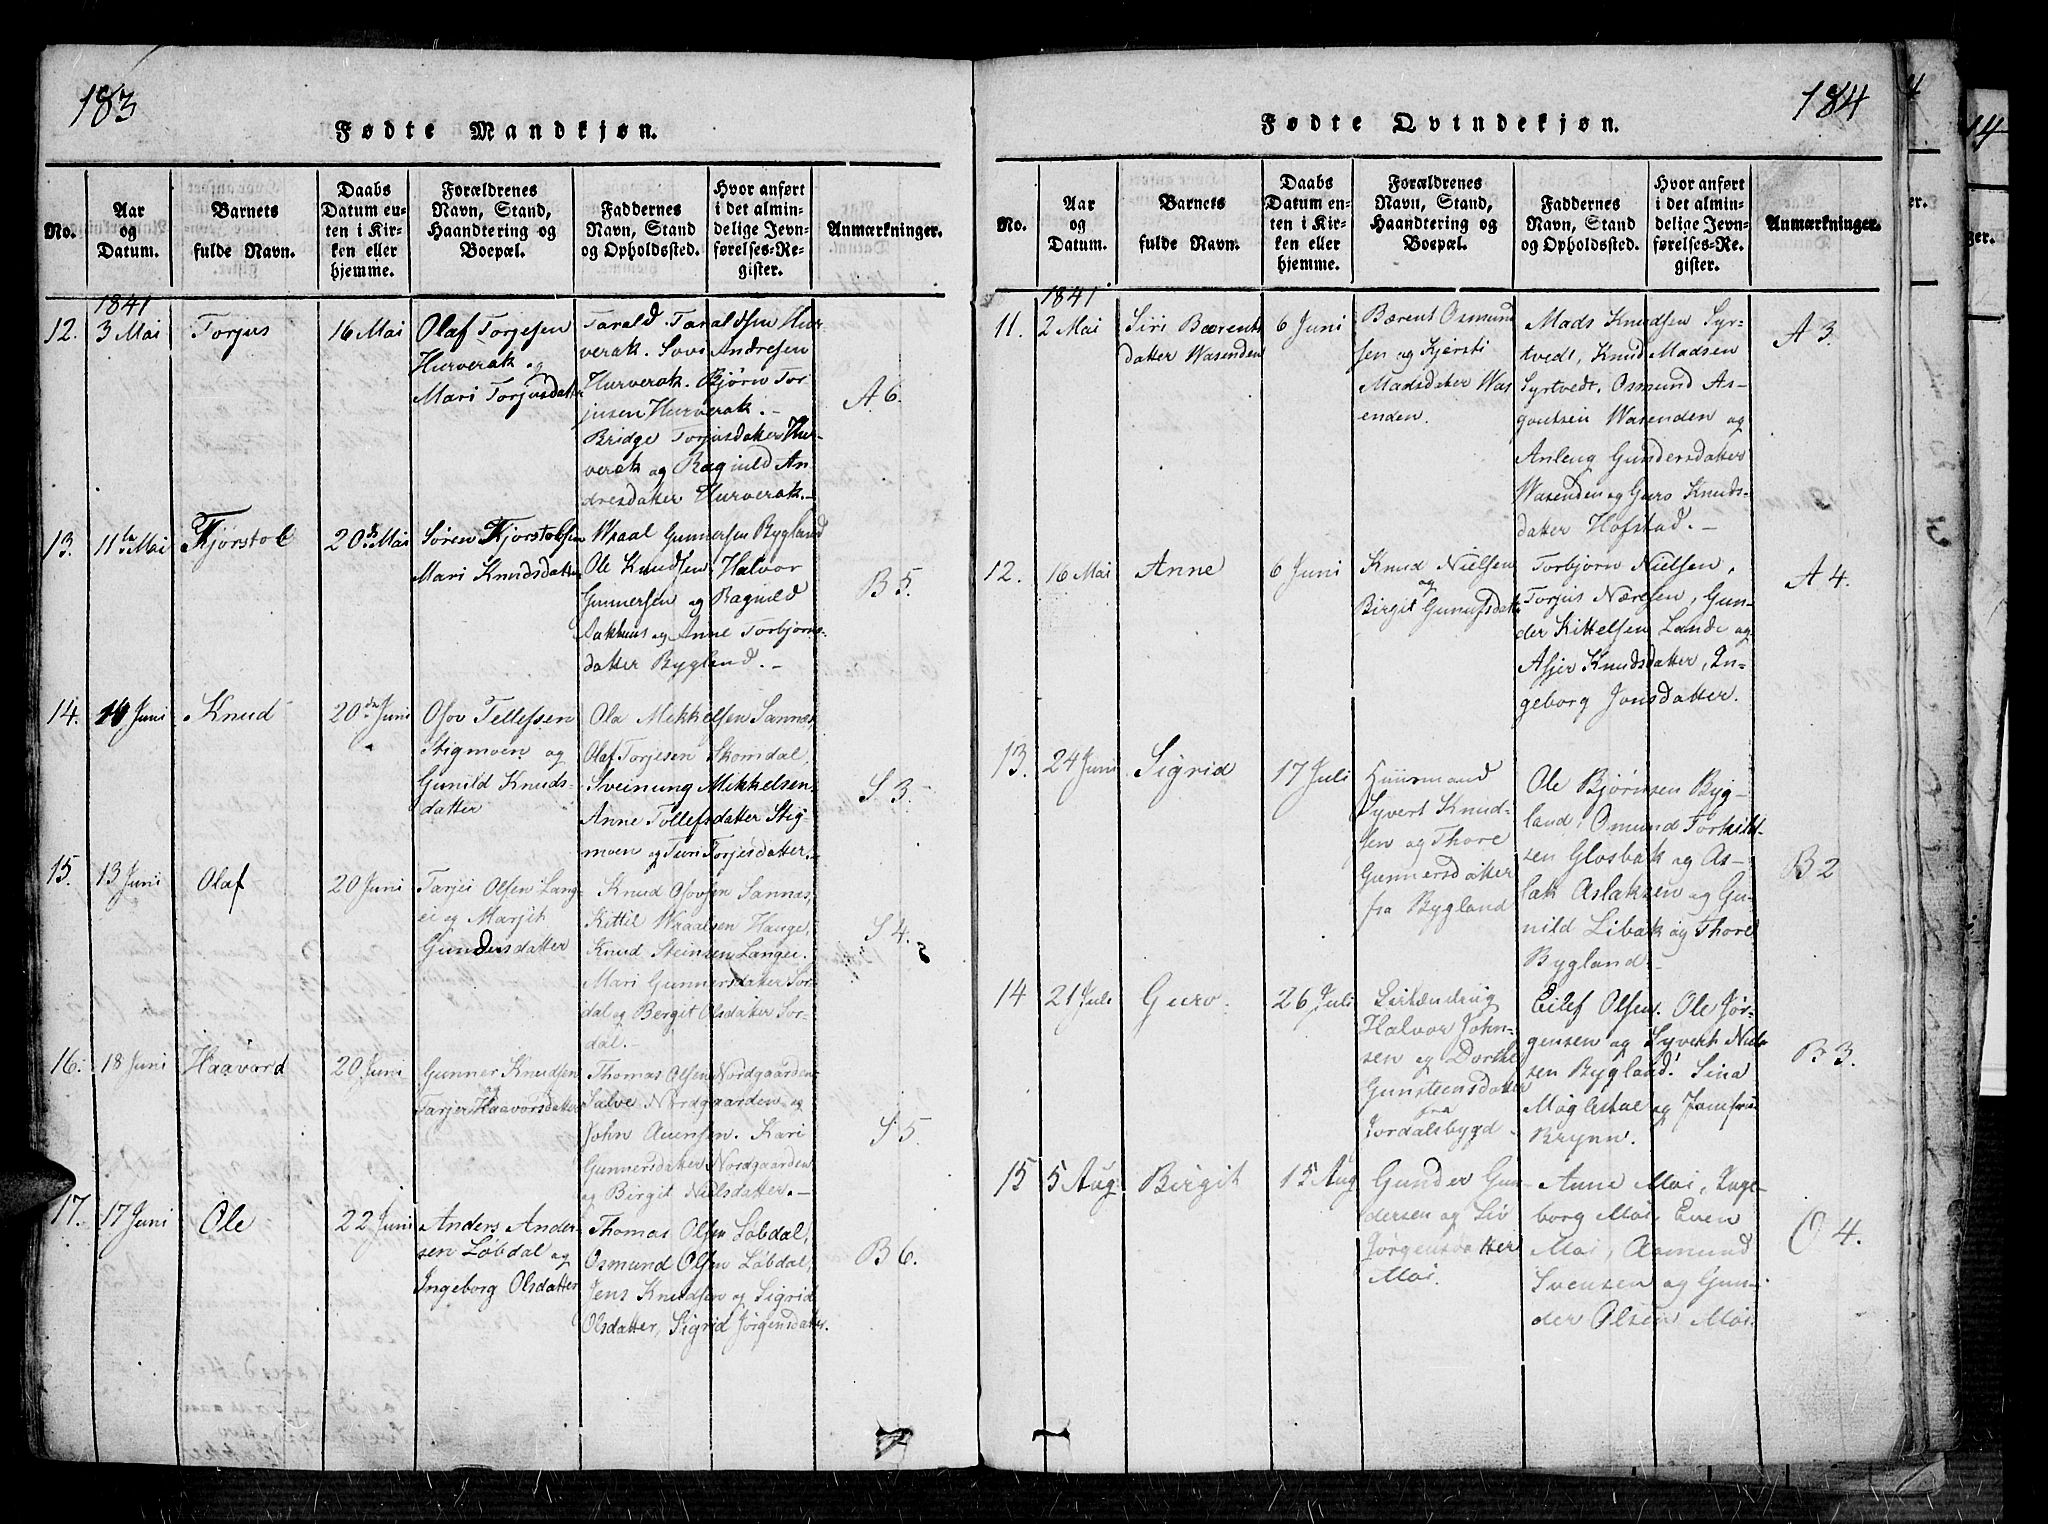 183
Fødte Mandkjøn.
No.
Aar
og
Datum.
Barnets
fulde Navn.
Daabs
Datum en-
ten i Kir-
ken eller
hjemme.
Forældrenes
Navn, Stand,
Haandtering og
Boepæl.
Faddernes
Navn, Stand
og Opholdssted.
Hvor anført
i det almin-
delige Jevn-
førelses-Re-
gister.
Anmærkninger.
1841
12.
3 Mai
Torjus
16 Mai
Olaf Torjesen
Hurverak og
Mari Torjusdatter
Tarald Taraldsen Hur-
verak. Sovi Andresen
Hurverak. Bjørn Tor-
jusen Hurverak.-
Bridge Torjusdatter Hur-
verak og Ragnild An-
dresdatter Hurverak.-
A 6.
13.
11te Mai
Kjørstol
20de Mai
Søren Kjørstolsen
Mari Knudsdatter
Wraal Gunnersen Bygland
Ole Knudsen. Halvor
Gunnersen og Ragnild
Aakhus og Anne Torbjørns-
datter Bygland.-
B 5.
14.
14 Juni
Knud
20de Juni
Osov Tellefsen
Stigmoen og
Gunild Knuds-
datter
Ola Mikkelsen Sannes,
Olaf Torjesen Skomdal,
Sveinung Mikkelsen,
Anne Tollefsdatter Stig-
moen og Turi Torjesdatter.-
S 3.
15.
13 Juni
Olaf
20 Juni
Tarjei Olsen Lang-
ei og Marjit
Gundersdatter
Knud Osovsen Sannes,
Kittil Wraalsen Hauge,
Knud Steinsen Langei.
Mari Gunnersdatter Sor-
dal og Bergit Olsdatter Sor-
dal.-
S 4.
16.
18 Juni
Haavard
20 Juni
Gunner Knudsen
og
Tarjer Haavorsdatter
Thomas Olsen Nordgaarden
Salve Nordgaarden og
John Auensen. Kari
Gunnersdatter Nordgaarden
og Birgit Nielsdatter.-
S 5.
17.
17 Juni
Ole
22 Juni
Anders Ander-
sen Løbdal og
Ingeborg Olsdatter
Thomas Olsen Løbdal,
Osmund Olsen Løbdal,
Jens Knudsen og Sigrid
Olsdatter, Sigrid Jørgensdatter.
B 6.
184
Fødte Qvindekjøn.
No.
Aar
og
Datum.
Barnets
fulde Navn.
Daabs
Datum en-
ten i Kir-
ken eller
hjemme.
Forældrenes
Navn, Stand,
Haandtering og
Boepæl.
Faddernes
Navn, Stand
og Opholdssted.
Hvor anført
i det almin-
delige Jevn-
førelses-Re-
gister.
Anmærkninger.
1841
11.
2 Mai
Siri Bærents
datter Wasenden
6 Juni
Bærent Osmund
sen og Kjersti
Madsdatter Was
enden.
Mads Knudsen Syr-
tvedt, Knud Madsen
Syrtvedt. Osmund As-
goutsen Wasenden og
Anleug Gundersdatter
Wasenden og Guro Knuds-
datter Hofstad.-
A 3.
12.
16 Mai
Anne
6 Juni
Knud Nielsen
og
Birgit Gunufsdatter
Torbjørn Nielsen,
Torjus Næresen, Gun-
der Kittelsen Lande og
Asjer Knudsdatter, In-
geborg Jonsdatter.
A 4.
13.
24 Juni
Sigrid
17 Juli
Huusmand
Syvert Knud-
sen og Thore
Gunnersdatter
fra Bygland
Ole Bjørnsen Byg-
land, Omund Torkild-
sen Glosbak og As-
lak Aslaksen og Gu-
nild Libak og Thore
Bygland-
B 2
14
21 Juli
Guro.
26 Juli
Halvor John-
sen og Dorthe
Gunsteensdatter
fra
Jordalsbygd-
Eilef Olsen. Ole Jør-
gensen og Syvert Niel-
sen Bygland. Sina
Møglestue og Jomfru
Brynn.
B 3.
15
5 Aug
Birgit
15 Aug
Gunder Gun-
dersen og Liv
Jørgensdatter
Moi.
Anne Moi, Inge-
borg Moi, Even
Moi, Asmund
Svensen og Gun-
der Olsen Moi.
O 4.